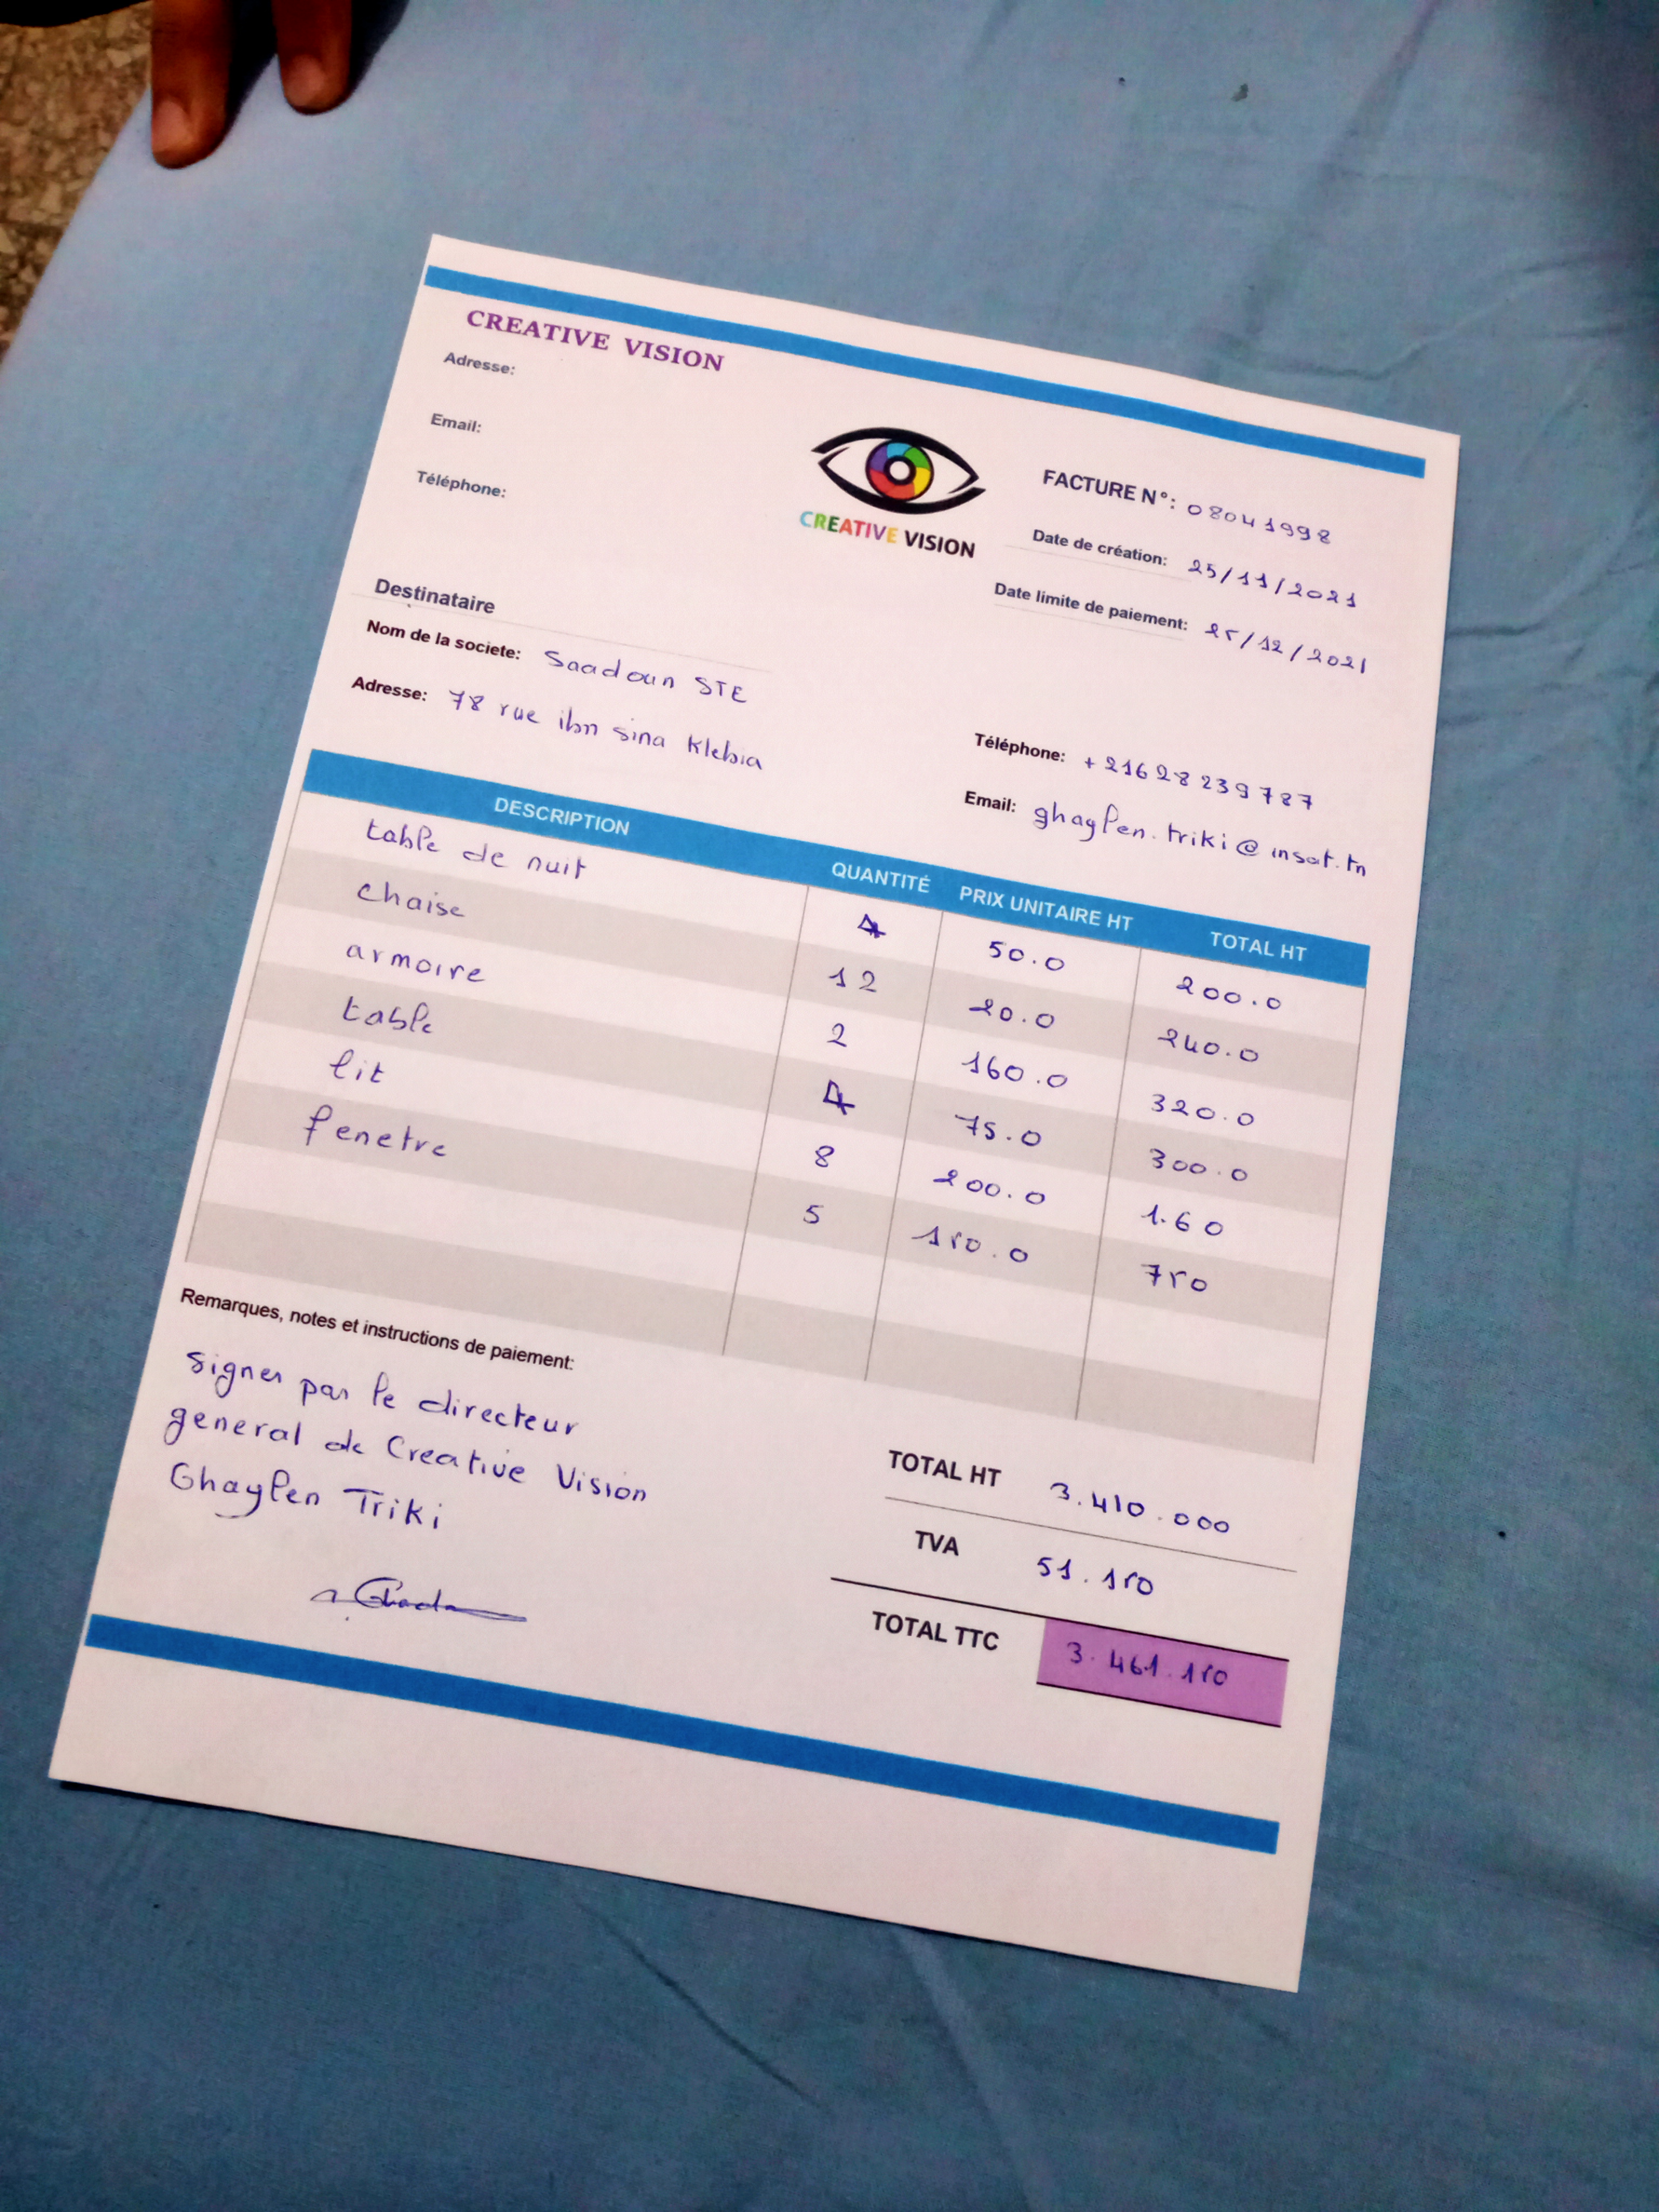 CREATIVE VISION
Adresse:
Email:
Téléphone:
CREATIVE VISION
FACTURE N°: 08041998
Date de création: 25/11/2021
Date limite de paiement: 25/12/2021
Destinataire
Nom de la societe: Saadoun STE
Adresse: 78 rue ibn sina Klebia
Téléphone: +216 28 239 787
Email: ghaylen.triki@insat.tn
DESCRIPTION QUANTITÉ PRIX UNITAIRE HT TOTAL HT
table de nuit 4 50.0 200.0
chaise 12 20.0 240.0
armoire 2 160.0 320.0
table 4 75.0 300.0
lit 8 200.0 1.60
fenetre 5 150.0 750
Remarques, notes et instructions de paiement:
signer par le directeur
general de Creative Vision
Ghaylen Triki
TOTAL HT 3.410.000
TVA 51.150
TOTAL TTC 3.461.150